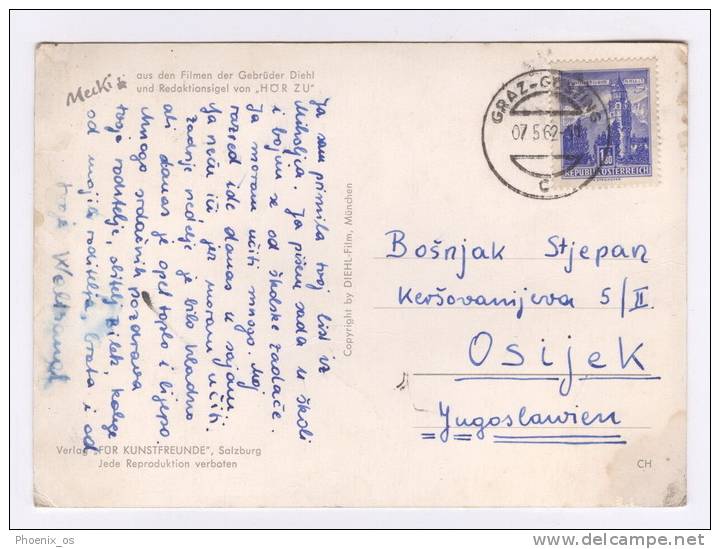 Mecki
aus den Filmen der Gebrüder Diehl
und Redaktionsigel von „HÖR ZU"
Ja sam primila tvoj list iz
Miholjca. Ja pišem sada u školi
i bojim se od školske zadaće.
Ja moram učiti mnogo. Moj
razred ide danas u sajam.
Ja neću ići jer moram učiti.
Zadnje nedelje je bilo hladno
ali danas je opet toplo i lijepo.
Mnogo srdačnih pozdrava
tvoje roditelje, obitelj Bilek, kolege
od mojih roditelja, brata i od
tvoj
Copyright by DIEHL-Film, München
GRAZ-GÖSTING
07.5.62
C
1.80
REPUBLIK ÖSTERREICH
Bošnjak Stjepan
Keršovanijeva 5/II
Osijek
Jugoslawien
Verlag „FÜR KUNSTFREUNDE", Salzburg
Jede Reproduktion verboten
CH
Phoenix_os
delcampe.net